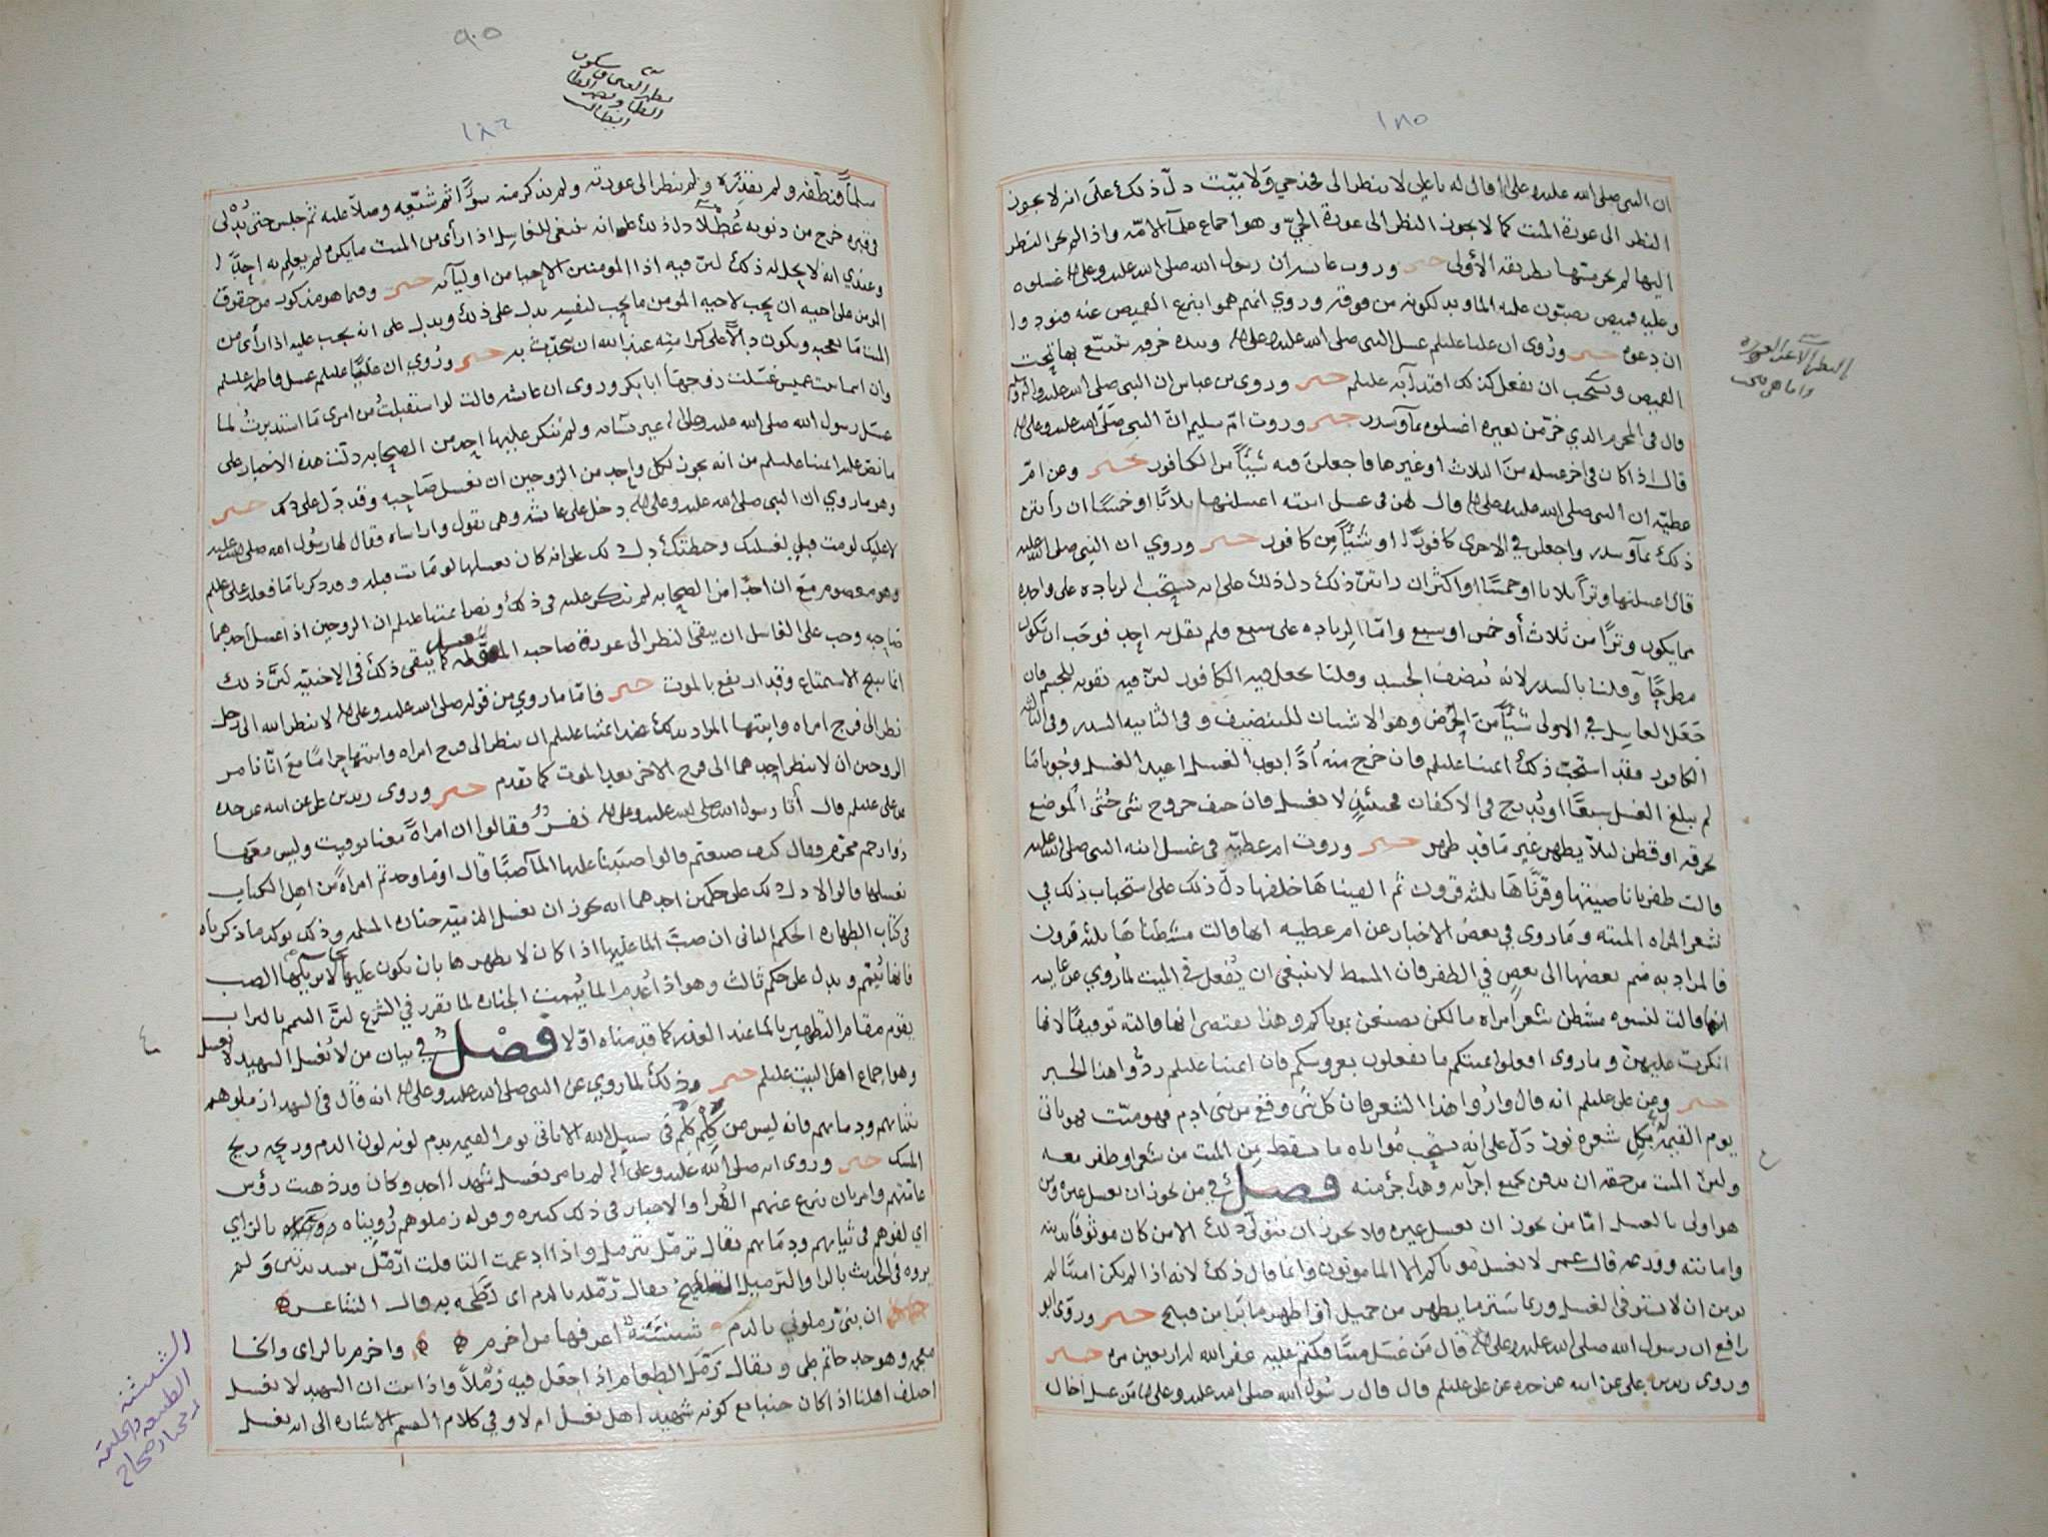 ١٨٥
ان النبي صلى الله عليه وعلى اله قال له يا علي لا ينظر الى فخذ حي ولا ميت دل ذلك على انه لا يجوز
النظر الى عورة الميت كما لا يجوز النظر الى عورة الحي وهو اجماع علماء الامة واذا لم يجز النظر
اليها لم يجز مسها بطريقة الأولى خبر وروت عائشة ان رسول الله صلى الله عليه وعلى اله غسلوه
وعليه قميص يصبون عليه الماء ويدلكونه من فوقه وروي انهم هموا بنزع القميص عنه فنودوا
ان دعوه خبر وروى ان عليا عليلم غسل النبي صلى الله عليه وعلى اله وبيده خرقه يتتبع بها تحت
القميص ويستحب ان يفعل كذلك اقتداء به عليلم خبر وروى بن عباس ان النبي صلى الله عليه واله
قال في المحرم الذي خر من بعيره اغسلوه بماء وسدر خبر وروت ام سليم ان النبي صلى الله عليه وعلى اله
قال اذا كان في اخر غسله من الثلاث او غيرها فاجعلن فيه شيئا من الكافور خبر وعن ام
عطيه ان النبي صلى الله عليه وعلى اله قال لهن في غسل ابنته اغسلنها ثلاثا او خمسا ان رأيتن
ذلك بماء وسدر واجعلن في الاخرى كافورا او شيئا من كافور خبر وروي ان النبي صلى الله عليه
قال اغسلنها وترا ثلاثا او خمسا او اكثر ان رايتن ذلك دل ذلك على انه يستحب الزياده على واحده
مما يكون وترا من ثلاث أو خمس او سبع واما الزياده على سبع فلم يقل به احد فوجب ان تكون
مطرحا وقلنا بالسدر لانه ينظف الجسد وقلنا يجعل فيه الكافور لان فيه تقويه للجسم فان
جعل الغاسل في الاولى شيئا من الحرض وهو الاشنان للتنظيف وفي الثانيه السدر وفي الثالثة
الكافور فقد استحب ذلك ائمتنا عليلم فان خرج منه أذا بعد الغسل اعيد الغسل وجوبا ما
لم يبلغ الغسل سبعا او يدرج في الاكفان فحينئذ لا يغسل فان خيف خروج شي حشي الموضع
بخرقه او قطن ليلا يطهر غير ما قد طهر خبر وروت ام عطيه في غسل ابنه النبي صلى الله عليه
قالت ظفرنا ناصيتها وقرناها ثلثه قرون ثم القيناها خلفها دل ذلك على استحباب ذلك في
شعر المراه الميته وما روى في بعض الاخبار عن ام عطيه انها قالت مشطناها ثلثه قرون
فالمراد به ضم بعضها الى بعض في الظفر فان المشط لا ينبغي ان يفعل في الميت لما روي عن عايشه
انها قالت لنسوه مشطن شعر امراه ما لكن تصنعن بموتاكم وهذا يقتضي انها قالته توقيفا لانها
انكرت عليهن وما روى افعلوا بميتكم ما تفعلون بعروسكم فان ائمتنا عليلم ردوا هذا الخبر
خبر وعن علي عليلم انه قال واروا هذا الشعر فان كل شى وقع من بنى ادم فهو ميت فهو ياتي
يوم القيمة بكل شعره نور دل على انه يستحب مواراه ما يسقط من الميت من شعر او ظفر معه
ولان الميت من حقه ان يدفن بجميع اجزائه وهذا جزء منه فصل في من يجوز ان يغسل غيره ومن
هو اولى بالغسل اما من يجوز ان يغسل غيره فلا يجوز ان يتولى ذلك الا من كان موثوقا بدينه
وامانته وورعه قال عمر لا يغسل موتاكم الا المامونون وانما قال ذلك لانه اذا لم يكن امينا لم
يومن ان لا يستوفي الغسل وربما ستر ما يظهر من جميل أو اظهر ما يرا من قبيح خبر وروى ابو
رافع ان رسول الله صلى الله عليه وعلى اله قال من غسل ميتا فكتم عليه غفر الله له اربعين مره خبر
وروى زيد بن علي عن ابيه عن جده عن علي عليلم قال قال رسول الله صلى الله عليه وعلى اله من غسل اخا له
١٨٦
سلما فنظفه ولم يقذره ولم ينظر الى عورته ولم يذكر منه سوءا ثم شيعه وصلا عليه ثم جلس حتى يدلى
في قبره خرج من ذنوبه عطلا دل ذلك على انه ينبغي للغاسل اذا رأى من الميت ما يكره لم يعلم به احدا
وعندي انه لا يحل له ذلك لان فيه اذا المومنين الاحيا من اوليائه خبر وفيما هو مذكور من حقوق
المومن على اخيه ان يحب لاخيه المومن ما يحب لنفسه يدل على ذلك ويدل على انه يجب عليه اذا رأى من
الميت ما يعجبه ويكون دالا على كرامته عند الله ان يتحدث به خبر وروي ان عليا عليلم غسل فاطمه عليلم
وان اسما بنت عميس غسلت زوجها ابا بكر وروى ان عائشه قالت لو استقبلت من امري ما استدبرت لما
غسل رسول الله صلى الله عليه وعلى اله غير نسائه ولم ينكر عليها احد من الصحابه دلت هذه الاخبار على
ما نص عليه ائمتنا عليلم من انه يجوز لكل واحد من الزوجين ان يغسل صاحبه وقد دل على ذلك خبر
وهو ما روي ان النبي صلى الله عليه وعلى اله دخل على عائشه وهي تقول واراساه فقال لها رسول الله صلى الله عليه
لا عليك لو مت قبلي لغسلتك وحنطتك دل ذلك على انه كان يغسلها لو ماتت قبله وقد ذكرنا ما فعله علي عليلم
وهو معصوم مع ان احدا من الصحابه لم ينكر عليه في ذلك ونص ائمتنا عليلم ان الزوجين اذا غسل أحدهما
صاحبه وجب على الغاسل ان يتقى النظر الى عورة صاحبه كما يتقى ذلك في الاجنبيه لان ذلك
انما يبيح الاستمتاع وقد ارتفع بالموت خبر فاما ما روي من قوله صلى الله عليه وعلى اله لا ينظر الله الى رجل
نظر الى فرج امراه وابنتها المراد بذلك عند ائمتنا عليلم ان ينظر الى فرج امراه وابنتها حراما مع انا نامر
الزوجين ان لا ينظر احدهما الى فرج الاخر بعد الموت كما تقدم خبر وروى زيد بن علي عن ابيه عن جده
عن علي عليلم قال أتا رسول الله صلى الله عليه وعلى اله نفر فقالوا ان امراة معنا توفيت وليس معها
ذو رحم محرم فقال كيف صنعتم قالوا صببنا عليها الماء صبا قال او ما وجدتم امراة من اهل الكتاب
تغسلها قالوا لا دل ذلك على حكمين احدهما انه يجوز ان تغسل الذميه جنازه المسلمه وذلك يوكد ما ذكرناه
في كتاب الطهاره الحكم الثاني ان صب الماء عليها اذا كان لا يطهرها بان يكون عليها ما لا يزيله الصب
فانها تيمم ويدل على حكم ثالث وهو اذا عدم الما يممت الجنازه لما تقرر في الشرع لان التيمم بالتراب
يقوم مقام التطهير بالماء عند العذر كما قدمناه اولا فصل في بيان من لا يغسل الشهيد لا يغسل
وهو اجماع اهل البيت عليلم خبر وذلك لما روي عن النبي صلى الله عليه وعلى اله انه قال في الشهداء زملوهم
بثيابهم ودمائهم فانه ليس من كلم كلم في سبيل الله الا ياتي يوم القيمه بدم لونه لون الدم وريحه ريح
المسك خبر وروى انه صلى الله عليه وعلى اله لم يامر بغسل شهداء احد وكان قد ذهبت رؤس
عامتهم وامر بان ينزع عنهم الفرا والاخبار في ذلك كثيره وقوله زملوهم رويناه بالزاي
اي لفوهم في ثيابهم ودمائهم يقال تزمل يتزمل واذا ادغمت التا قلت ازمل بتشديدتين ولم
يروه في الحديث بالرا والترميل التلطيخ يقال رمله بالدم اى لطخه به قال الشاعر
ان بنى زملوني بالدم شنشنة اعرفها من اخزم واخزم بالزاى والخا
معجمه وهو جد حاتم طي ويقال رمل الطعام اذا جعل فيه رملا واذا ثبت ان الشهيد لا يغسل
اختلف اهلنا اذا كان جنبا مع كونه شهيدا هل يغسل ام لا وفي كلام القسم الاشاره الى انه يغسل
الشنشنه
الطبيعه والخليقه
مختار صحاح